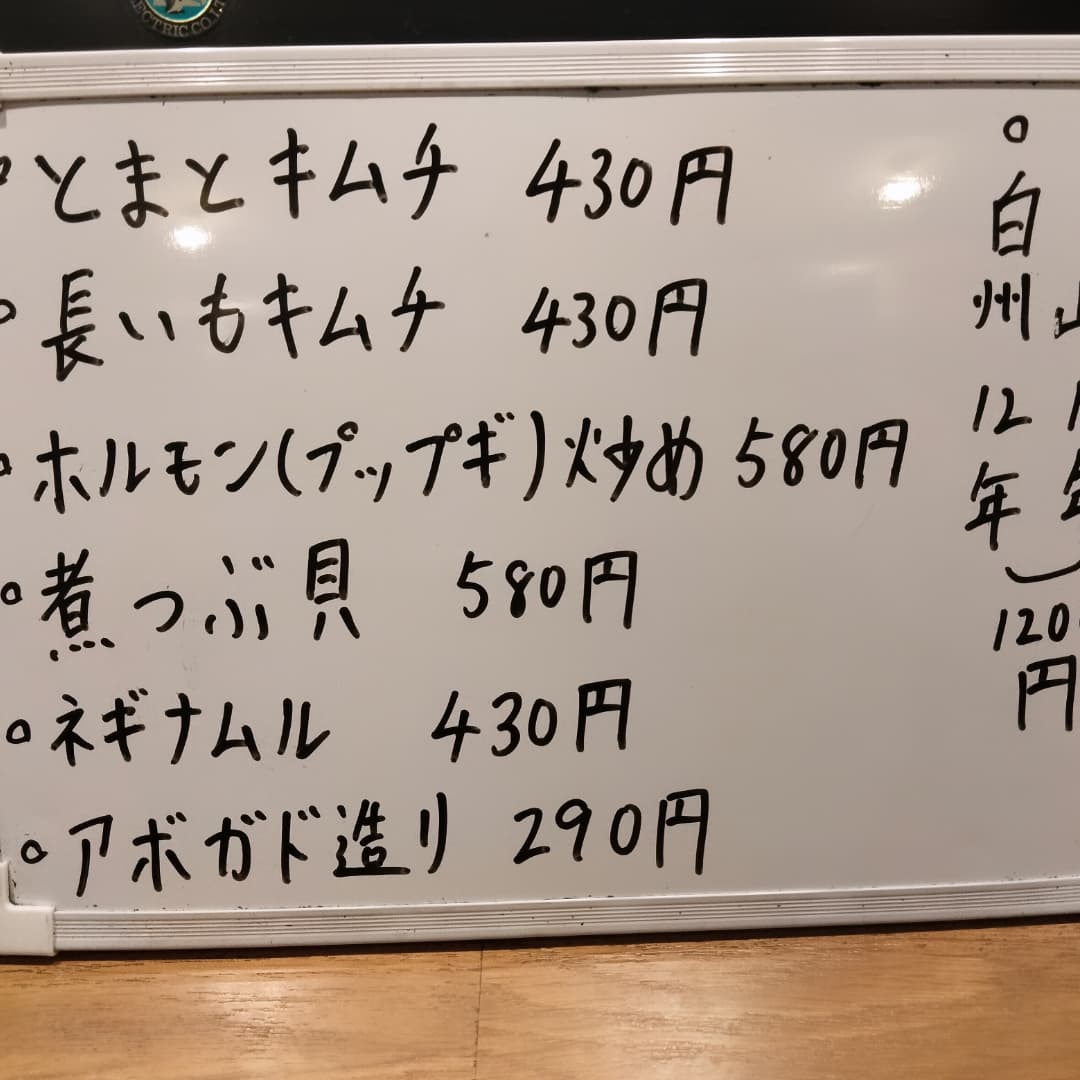 ECTRIC CO. LT
°とまとキムチ 430円
°長いもキムチ 430円
°ホルモン(プップギ)炒め 580円
°煮つぶ貝 580円
°ネギナムル 430円
°アボガド造り 290円
°白州12年
120
円